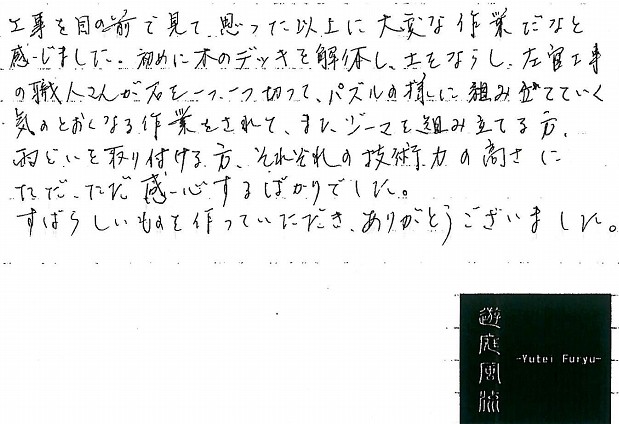 工事を目の前で見て、思った以上に大変な作業だなと
感じました。初めに木のデッキを解体し、土をならし、左官工事
の職人さんが石を一つ一つ切って、パズルの様に組み立てていく
気のとおくなる作業をされて、また、ジーマを組み立てる方、
雨どいを取り付ける方、それぞれの技術力の高さに
ただ、ただ感心するばかりでした。
すばらしいものを作っていただき、ありがとうございました。
遊庭風流
-Yutei Furyu-